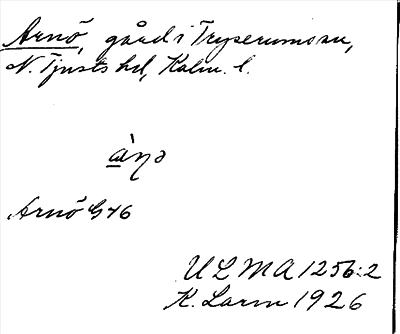 Arnö, gård i Tryserums sn,
N. Tjusts hd, Kalm. l.
àꞃə
Arnö G46
ULMA 1256:2
K. Larm 1926